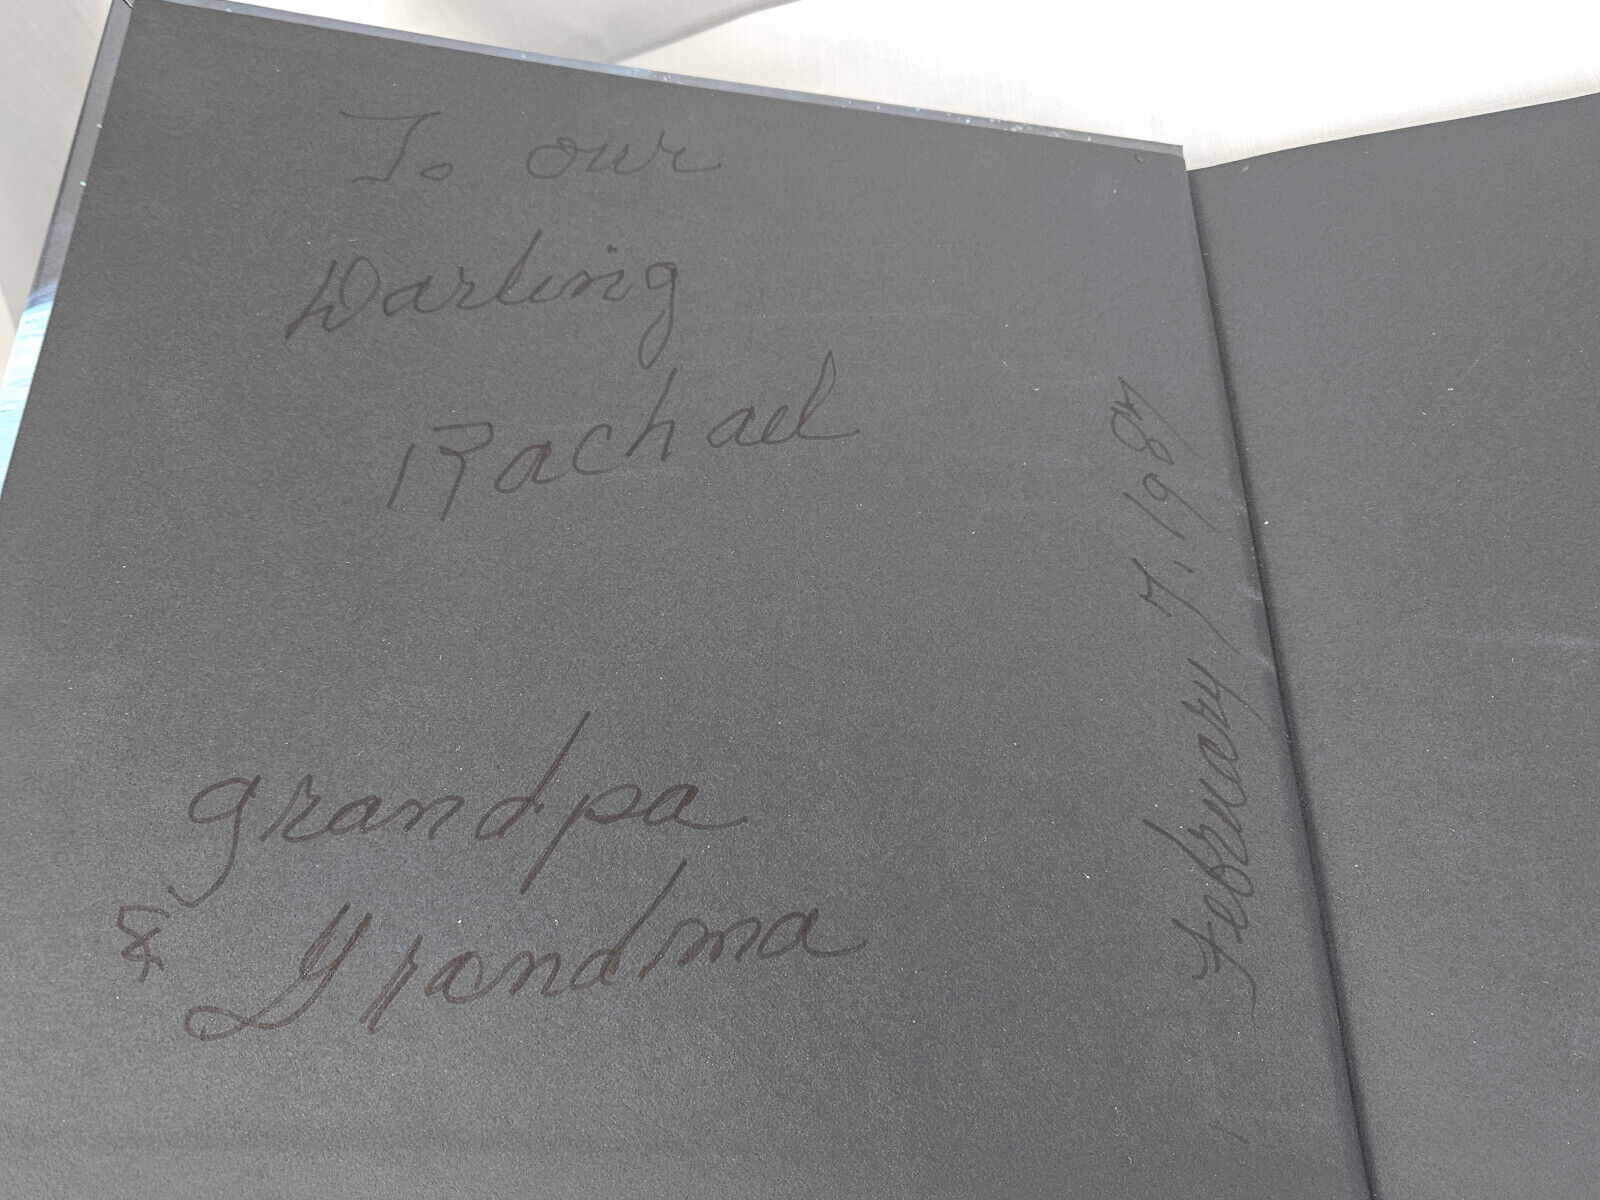 To our
Darling
Rachael
grandpa
& Grandma
February 7, 1987